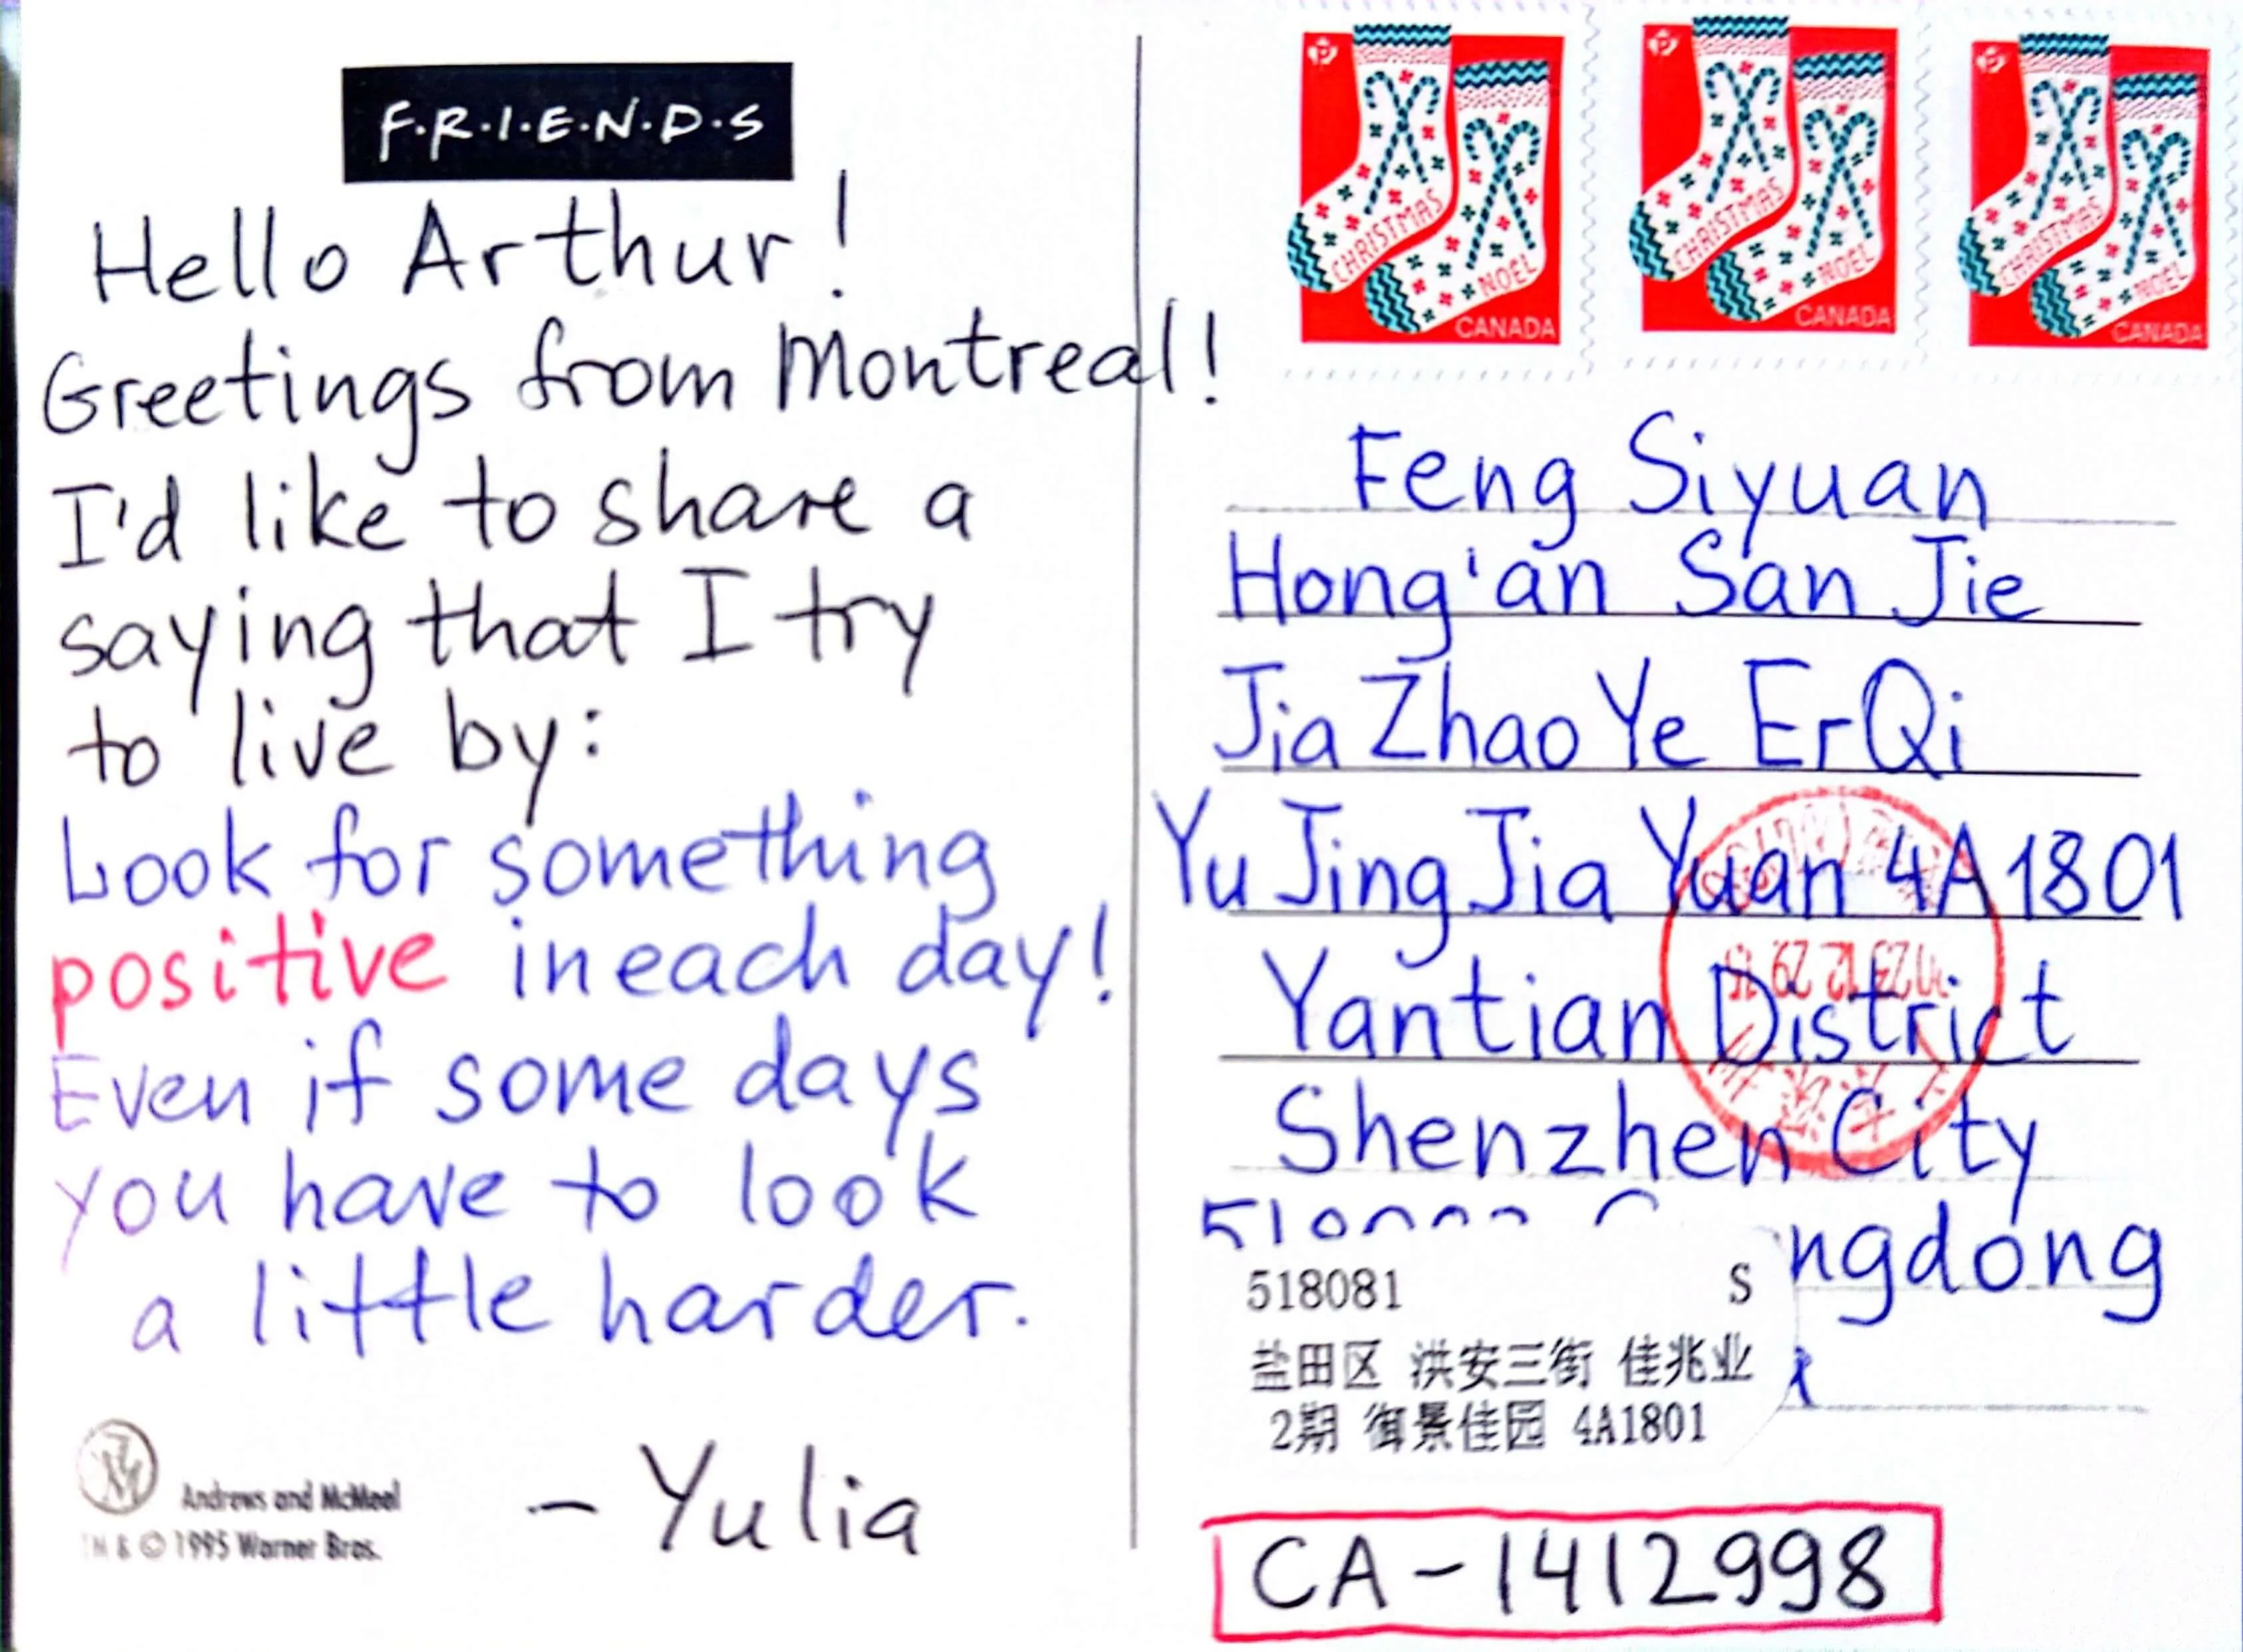 F·R·I·E·N·D·S
Hello Arthur!
Greetings from Montreal!
I'd like to share a
saying that I try
to live by:
Look for something
positive in each day!
Even if some days
you have to look
a little harder.
- Yulia
Andrews and McMeel
TM & © 1995 Warner Bros.
P
CHRISTMAS
NOEL
CANADA
P
CHRISTMAS
NOEL
CANADA
P
CHRISTMAS
NOEL
CANADA
Feng Siyuan
Hong'an San Jie
Jia Zhao Ye ErQi
Yu Jing Jia Yuan 4A1801
Yantian District
Shenzhen City
ngdong
518081 S
盐田区 洪安三街 佳兆业
2期 御景佳园 4A1801
CA-1412998